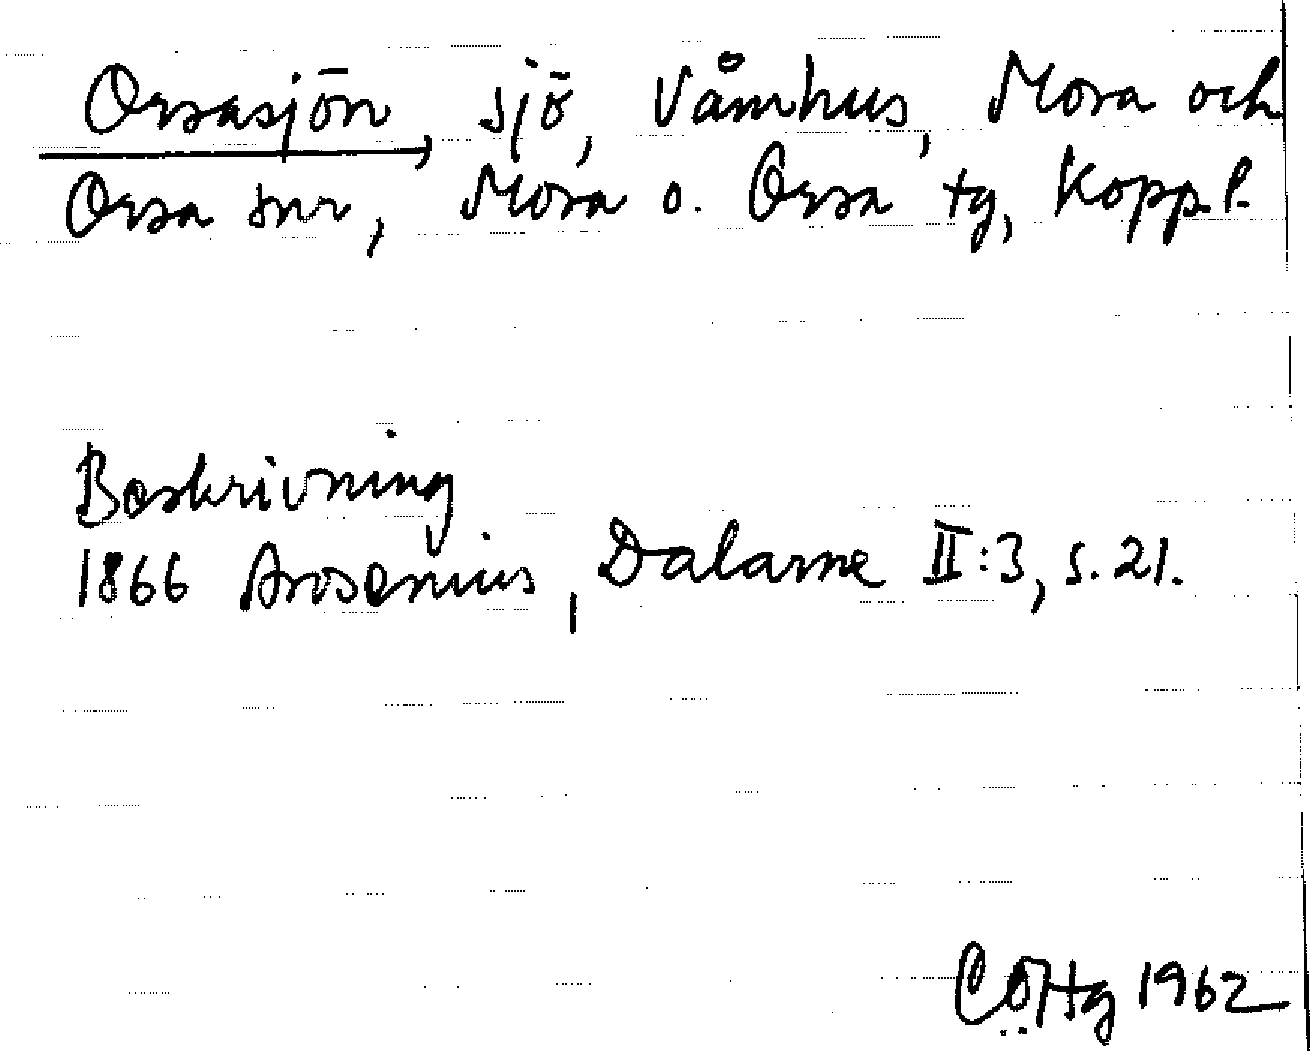 Orsasjön, sjö, Våmhus, Mora och
Orsa snr, Mora o. Orsa tg, Kopp.l.
Beskrivning
1866 Arosenius, Dalarne II:3, s. 21.
CÖHg 1962